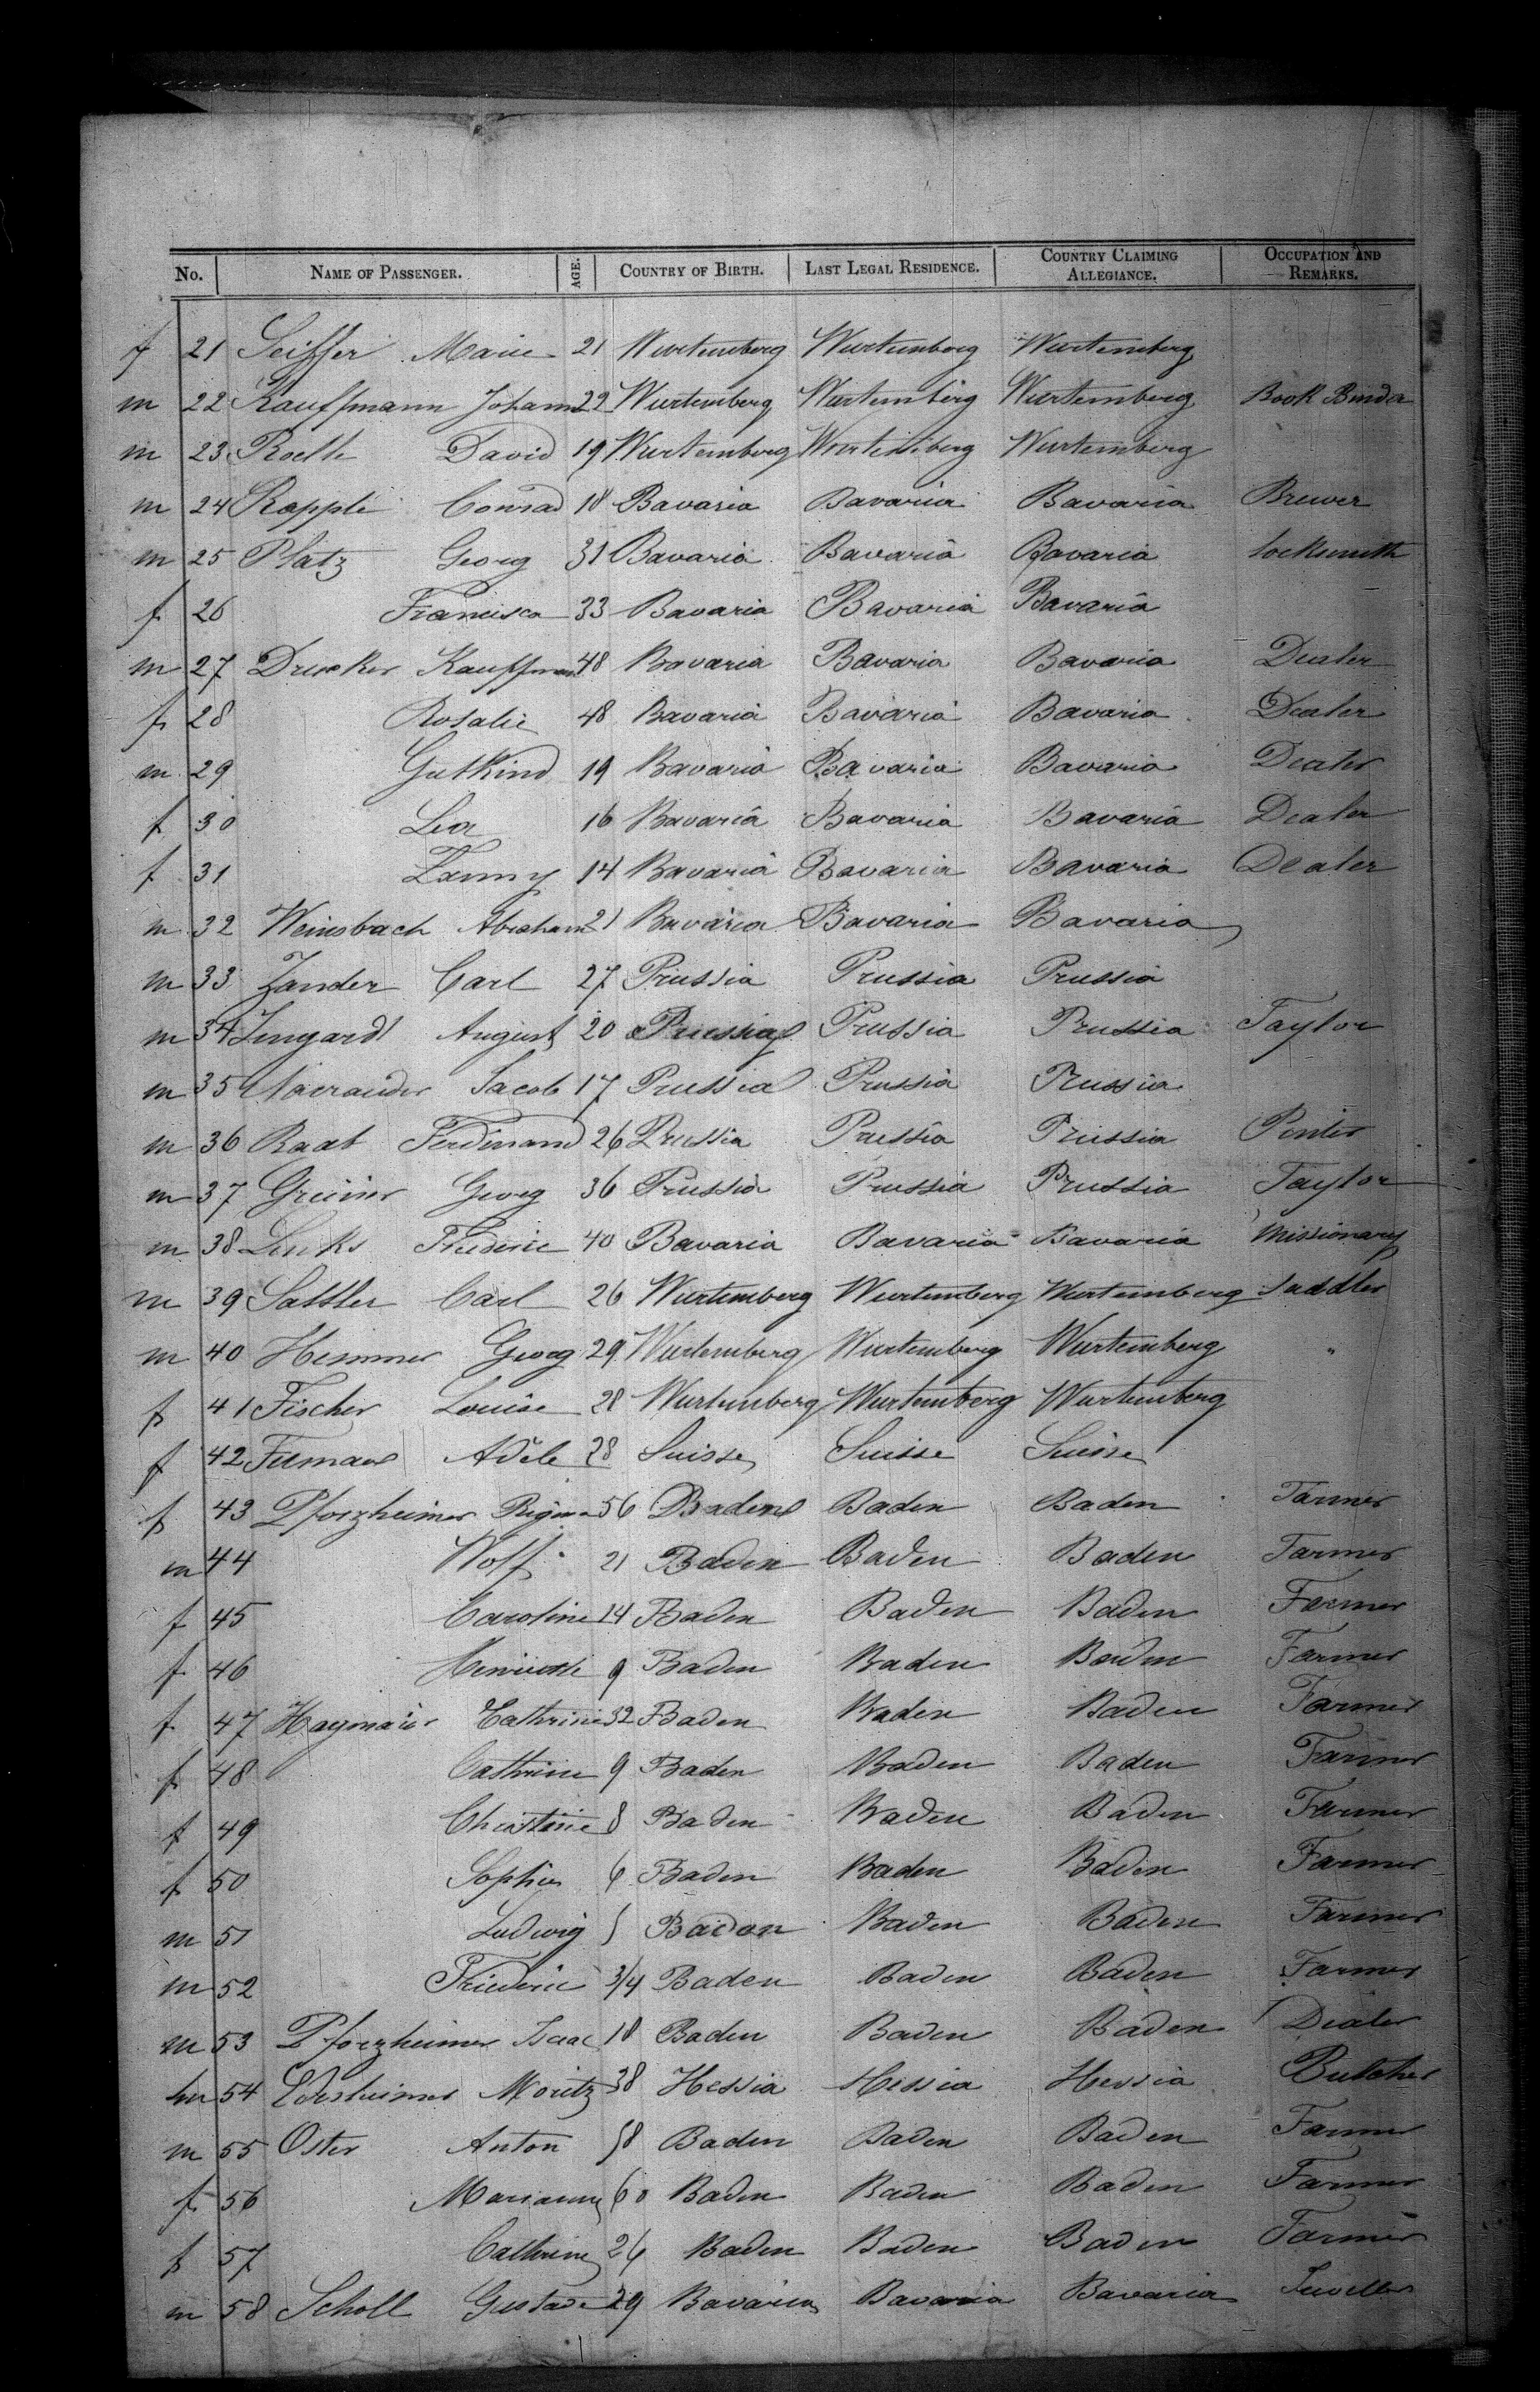 No. NAME OF PASSENGER. AGE. COUNTRY OF BIRTH. LAST LEGAL RESIDENCE. COUNTRY CLAIMING ALLEGIANCE. OCCUPATION AND REMARKS.
f 21 Seiffer Marie 21 Wurtemberg Wurtemberg Wurtemberg
m 22 Kauffmann Johann 22 Wurtemberg Wurtemberg Wurtemberg Book Binder
m 23 Roelle David 19 Wurtemberg Wurtemberg Wurtemberg
m 24 Rapple Conrad 18 Bavaria Bavaria Bavaria Brewer
m 25 Platz Georg 31 Bavaria Bavaria Bavaria Locksmith
f 26 Francisca 33 Bavaria Bavaria Bavaria
m 27 Drucker Kauffman 48 Bavaria Bavaria Bavaria Dealer
f 28 Rosalie 48 Bavaria Bavaria Bavaria Dealer
m 29 Gutkind 19 Bavaria Bavaria Bavaria Dealer
f 30 Lea 16 Bavaria Bavaria Bavaria Dealer
f 31 Fanny 14 Bavaria Bavaria Bavaria Dealer
m 32 Weinsbach Abraham 21 Bavaria Bavaria Bavaria
m 33 Zander Carl 27 Prussia Prussia Prussia
m 34 August 20 Prussia Prussia Prussia Taylor
m 35 Jacob 17 Prussia Prussia Prussia
m 36 Raab Ferdinand 26 Prussia Prussia Prussia Penter
m 37 Greiner Georg 36 Prussia Prussia Prussia Taylor
m 38 Links Frederic 40 Bavaria Bavaria Bavaria Missionary
m 39 Sattler Carl 26 Wurtemberg Wurtemberg Wurtemberg Saddler
m 40 Hemmer Georg 29 Wurtemberg Wurtemberg Wurtemberg "
f 41 Fischer Louise 28 Wurtemberg Wurtemberg Wurtemberg
f 42 Adele 28 Suisse Suisse Suisse
f 43 Pforzheimer Regina 56 Baden Baden Baden Farmer
m 44 Wolf 21 Baden Baden Baden Farmer
f 45 Caroline 14 Baden Baden Baden Farmer
f 46 Henriette 9 Baden Baden Baden Farmer
f 47 Haymaier Cathrine 32 Baden Baden Baden Farmer
f 48 Cathrine 9 Baden Baden Baden Farmer
f 49 Christine 8 Baden Baden Baden Farmer
f 50 Sophie 6 Baden Baden Baden Farmer
m 51 Ludwig 5 Baden Baden Baden Farmer
m 52 Friederic 3/4 Baden Baden Baden Farmer
m 53 Pforzheimer Isaac 18 Baden Baden Baden Dealer
m 54 Edesheimer Moritz 38 Hessia Hessia Hessia Butcher
m 55 Oster Anton 58 Baden Baden Baden Farmer
f 56 Marianne 60 Baden Baden Baden Farmer
f 57 Cathrine 26 Baden Baden Baden Farmer
m 58 Scholl Gustave 29 Bavaria Bavaria Bavaria Juveller